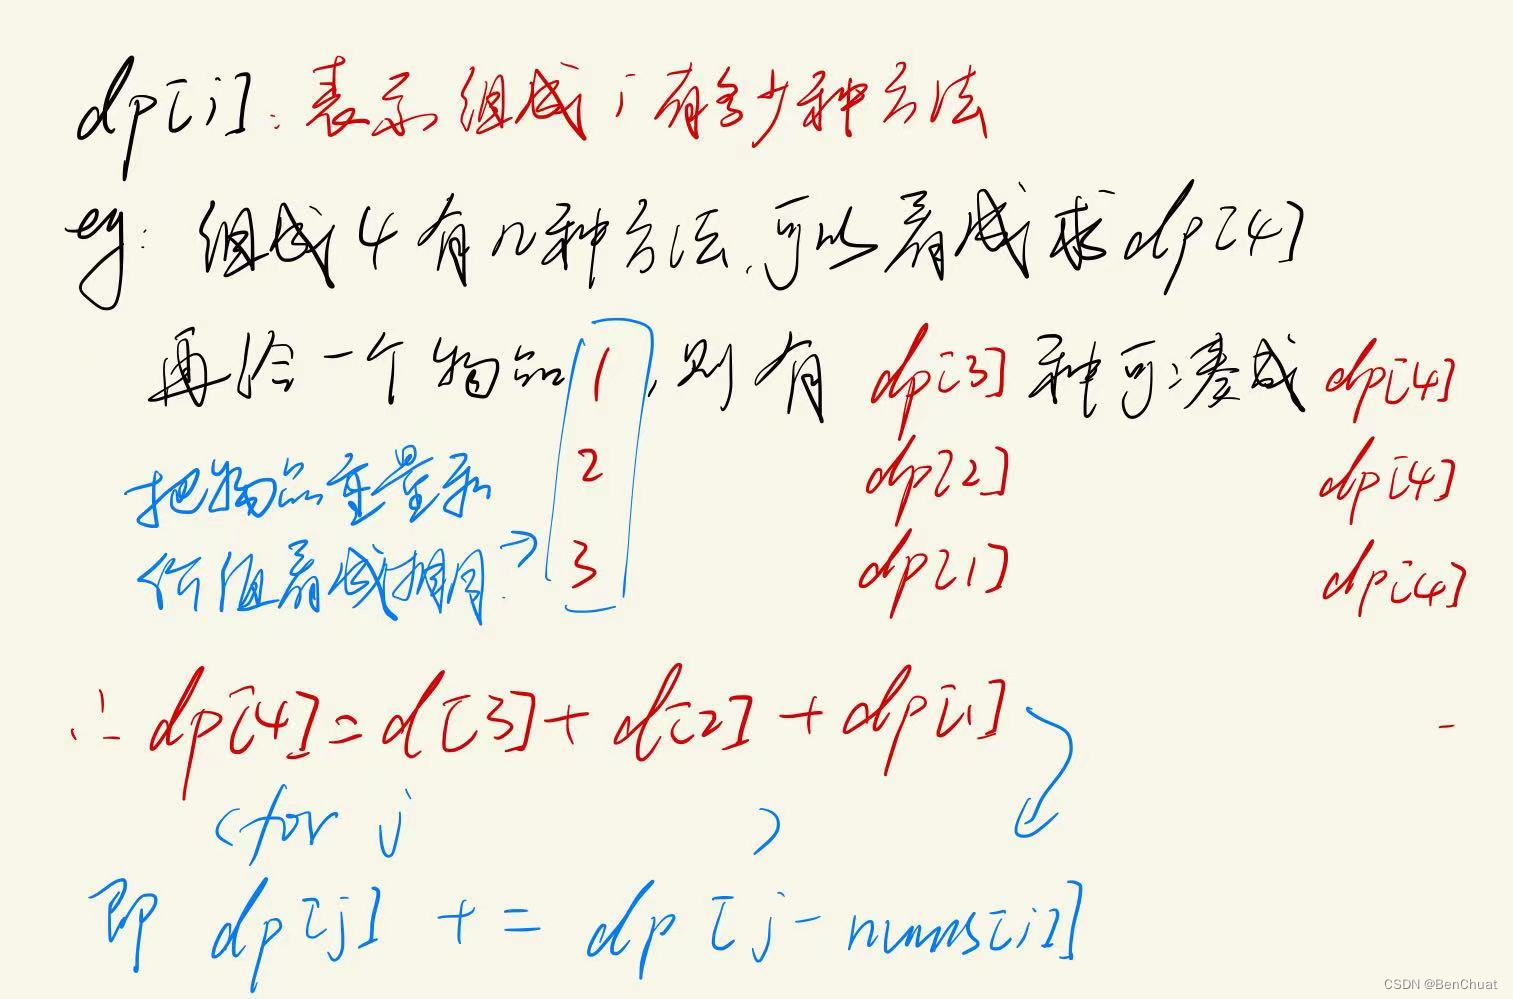 dp[i]: 表示组成 i 有多少种方法
eg: 组成 4 有几种方法, 可以看成求 dp[4]
再给一个物品 1, 则有 dp[3] 种可凑成 dp[4]
2 dp[2] dp[4]
把物品重量和
价值看成相同 → 3 dp[1] dp[4]
∴ dp[4] = d[3] + d[2] + dp[1]
(for j )
即 dp[j] += dp[j-nums[i]]
CSDN @BenChuat